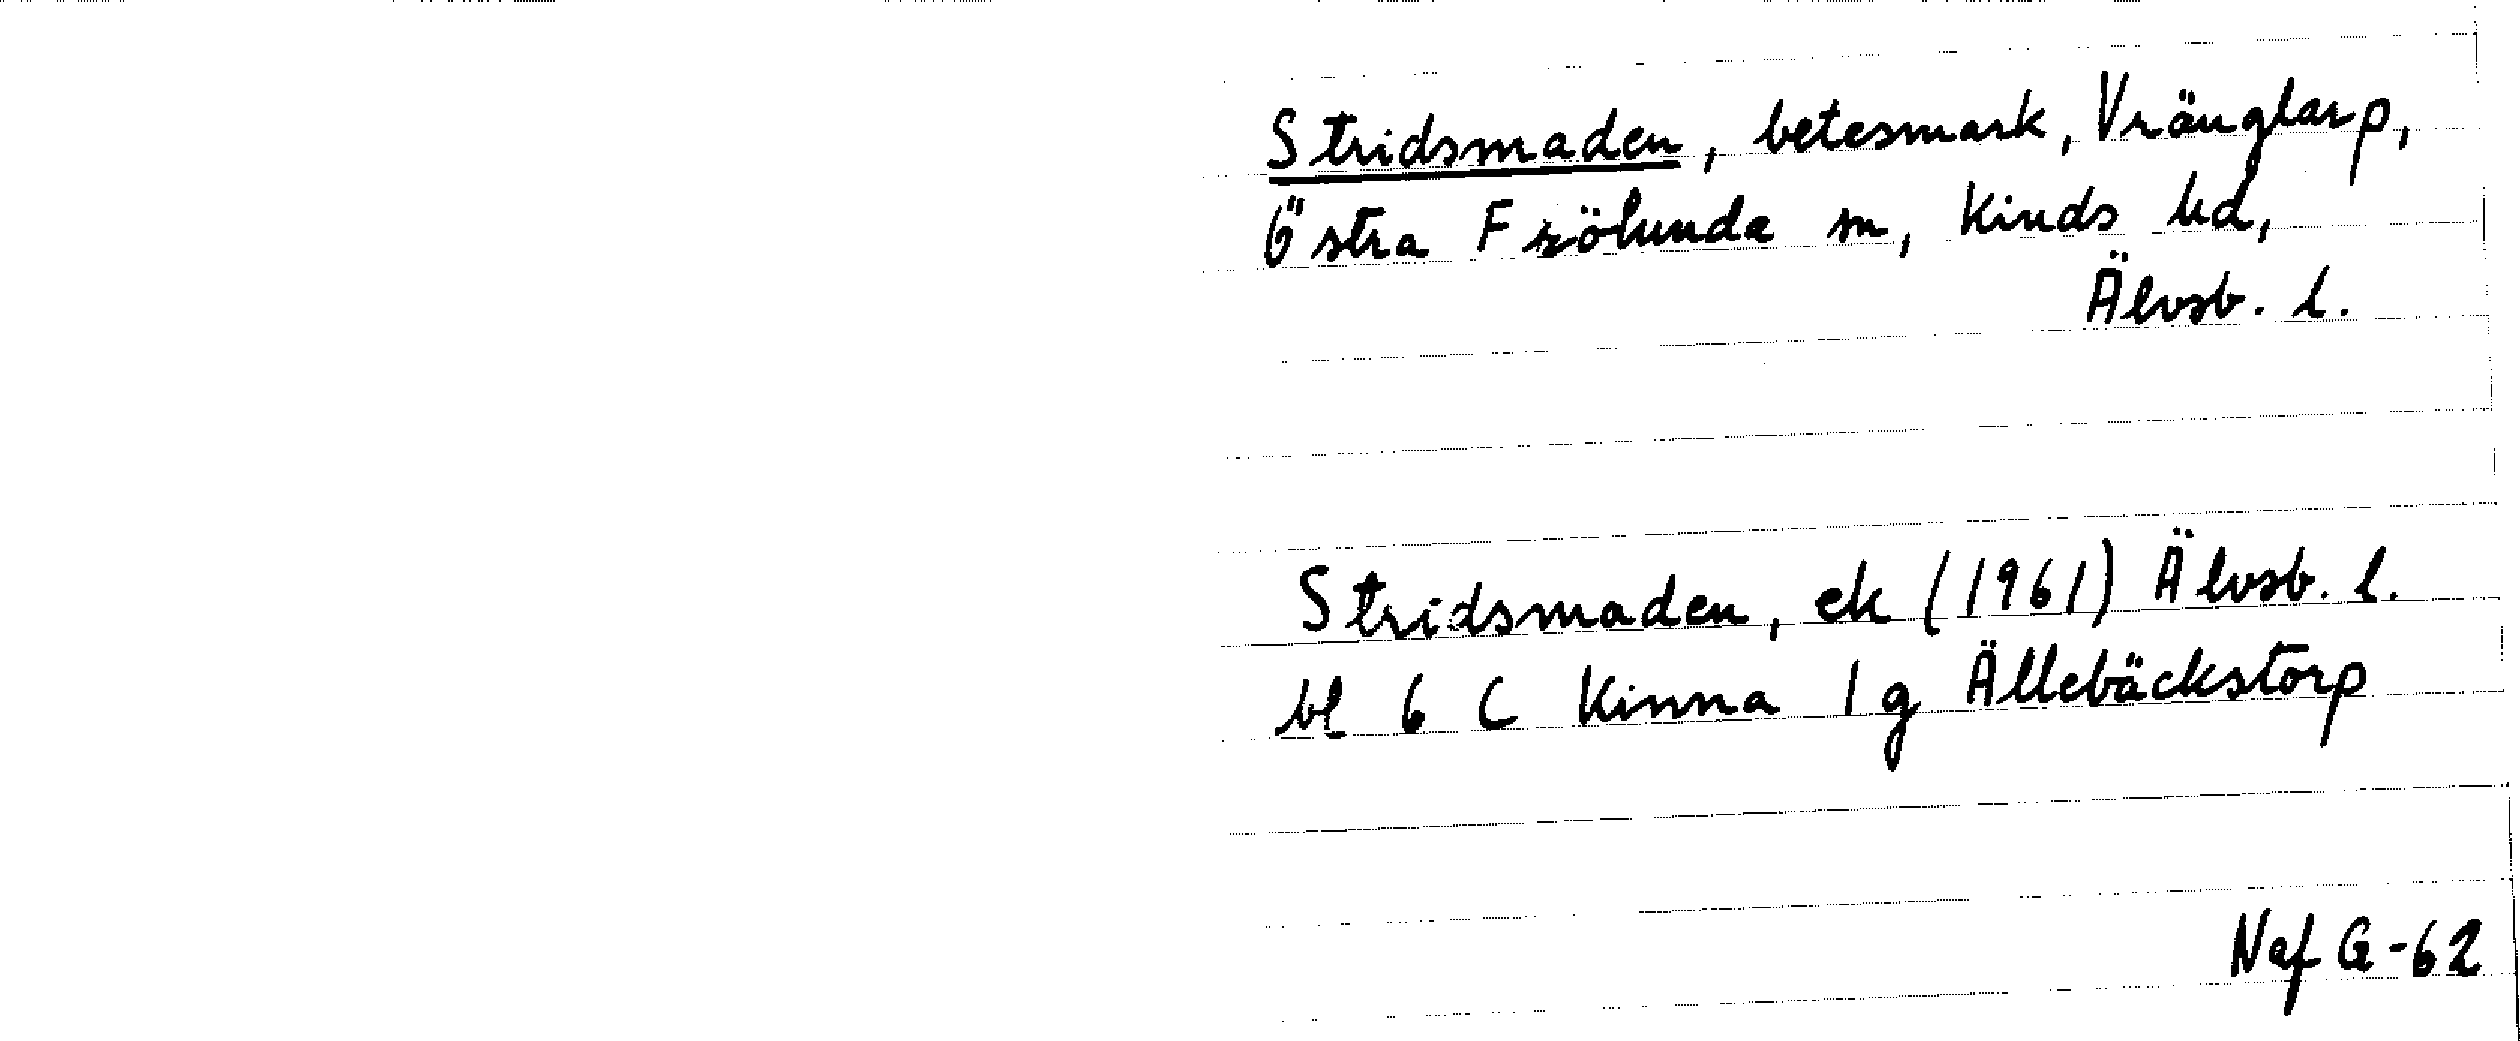 Stridsmaden, betesmark, Vränglarp,
Östra Frölunda sn, Kinds hd,
Älvsb. l.
Stridsmaden, ek (1961) Älvsb. l.
bl 6 C Kinna 1 g Ällebäckstorp
Naf G-62